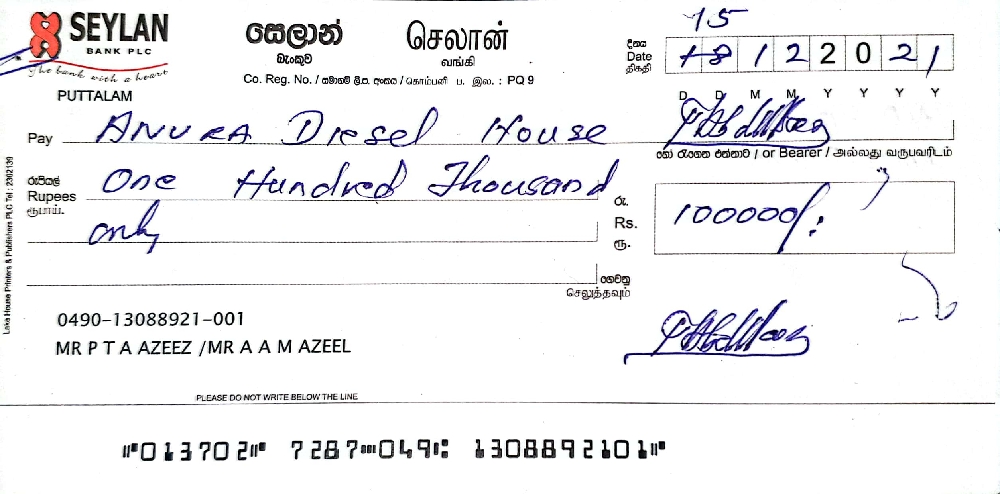 SEYLAN
BANK PLC
The bank with a heart
PUTTALAM
සෙලාන්
බැංකුව
செலான்
வங்கி
Co. Reg. No. / සමාගම් ලි.ප. අංකය / கொம்பனி ப. இல. : PQ 9
15
දිනය
Date
திகதி
18 12 2021
D D M M Y Y Y Y
Pay ANURA Diesel House
හෝ රැගෙන එන්නාට / or Bearer / அல்லது வருபவரிடம்
රුපියල්
Rupees
ரூபாய்.
One Hundred Thousand
only
රු.
Rs.
ரூ.
100000/:
ගෙවනු
செலுத்தவும்
0490-13088921-001
MR P T A AZEEZ /MR A A M AZEEL
PLEASE DO NOT WRITE BELOW THE LINE
⑈013702⑈ 7287⑉049⑆ 1308892101⑈
Lake House Printers & Publishers PLC Tel : 2302139